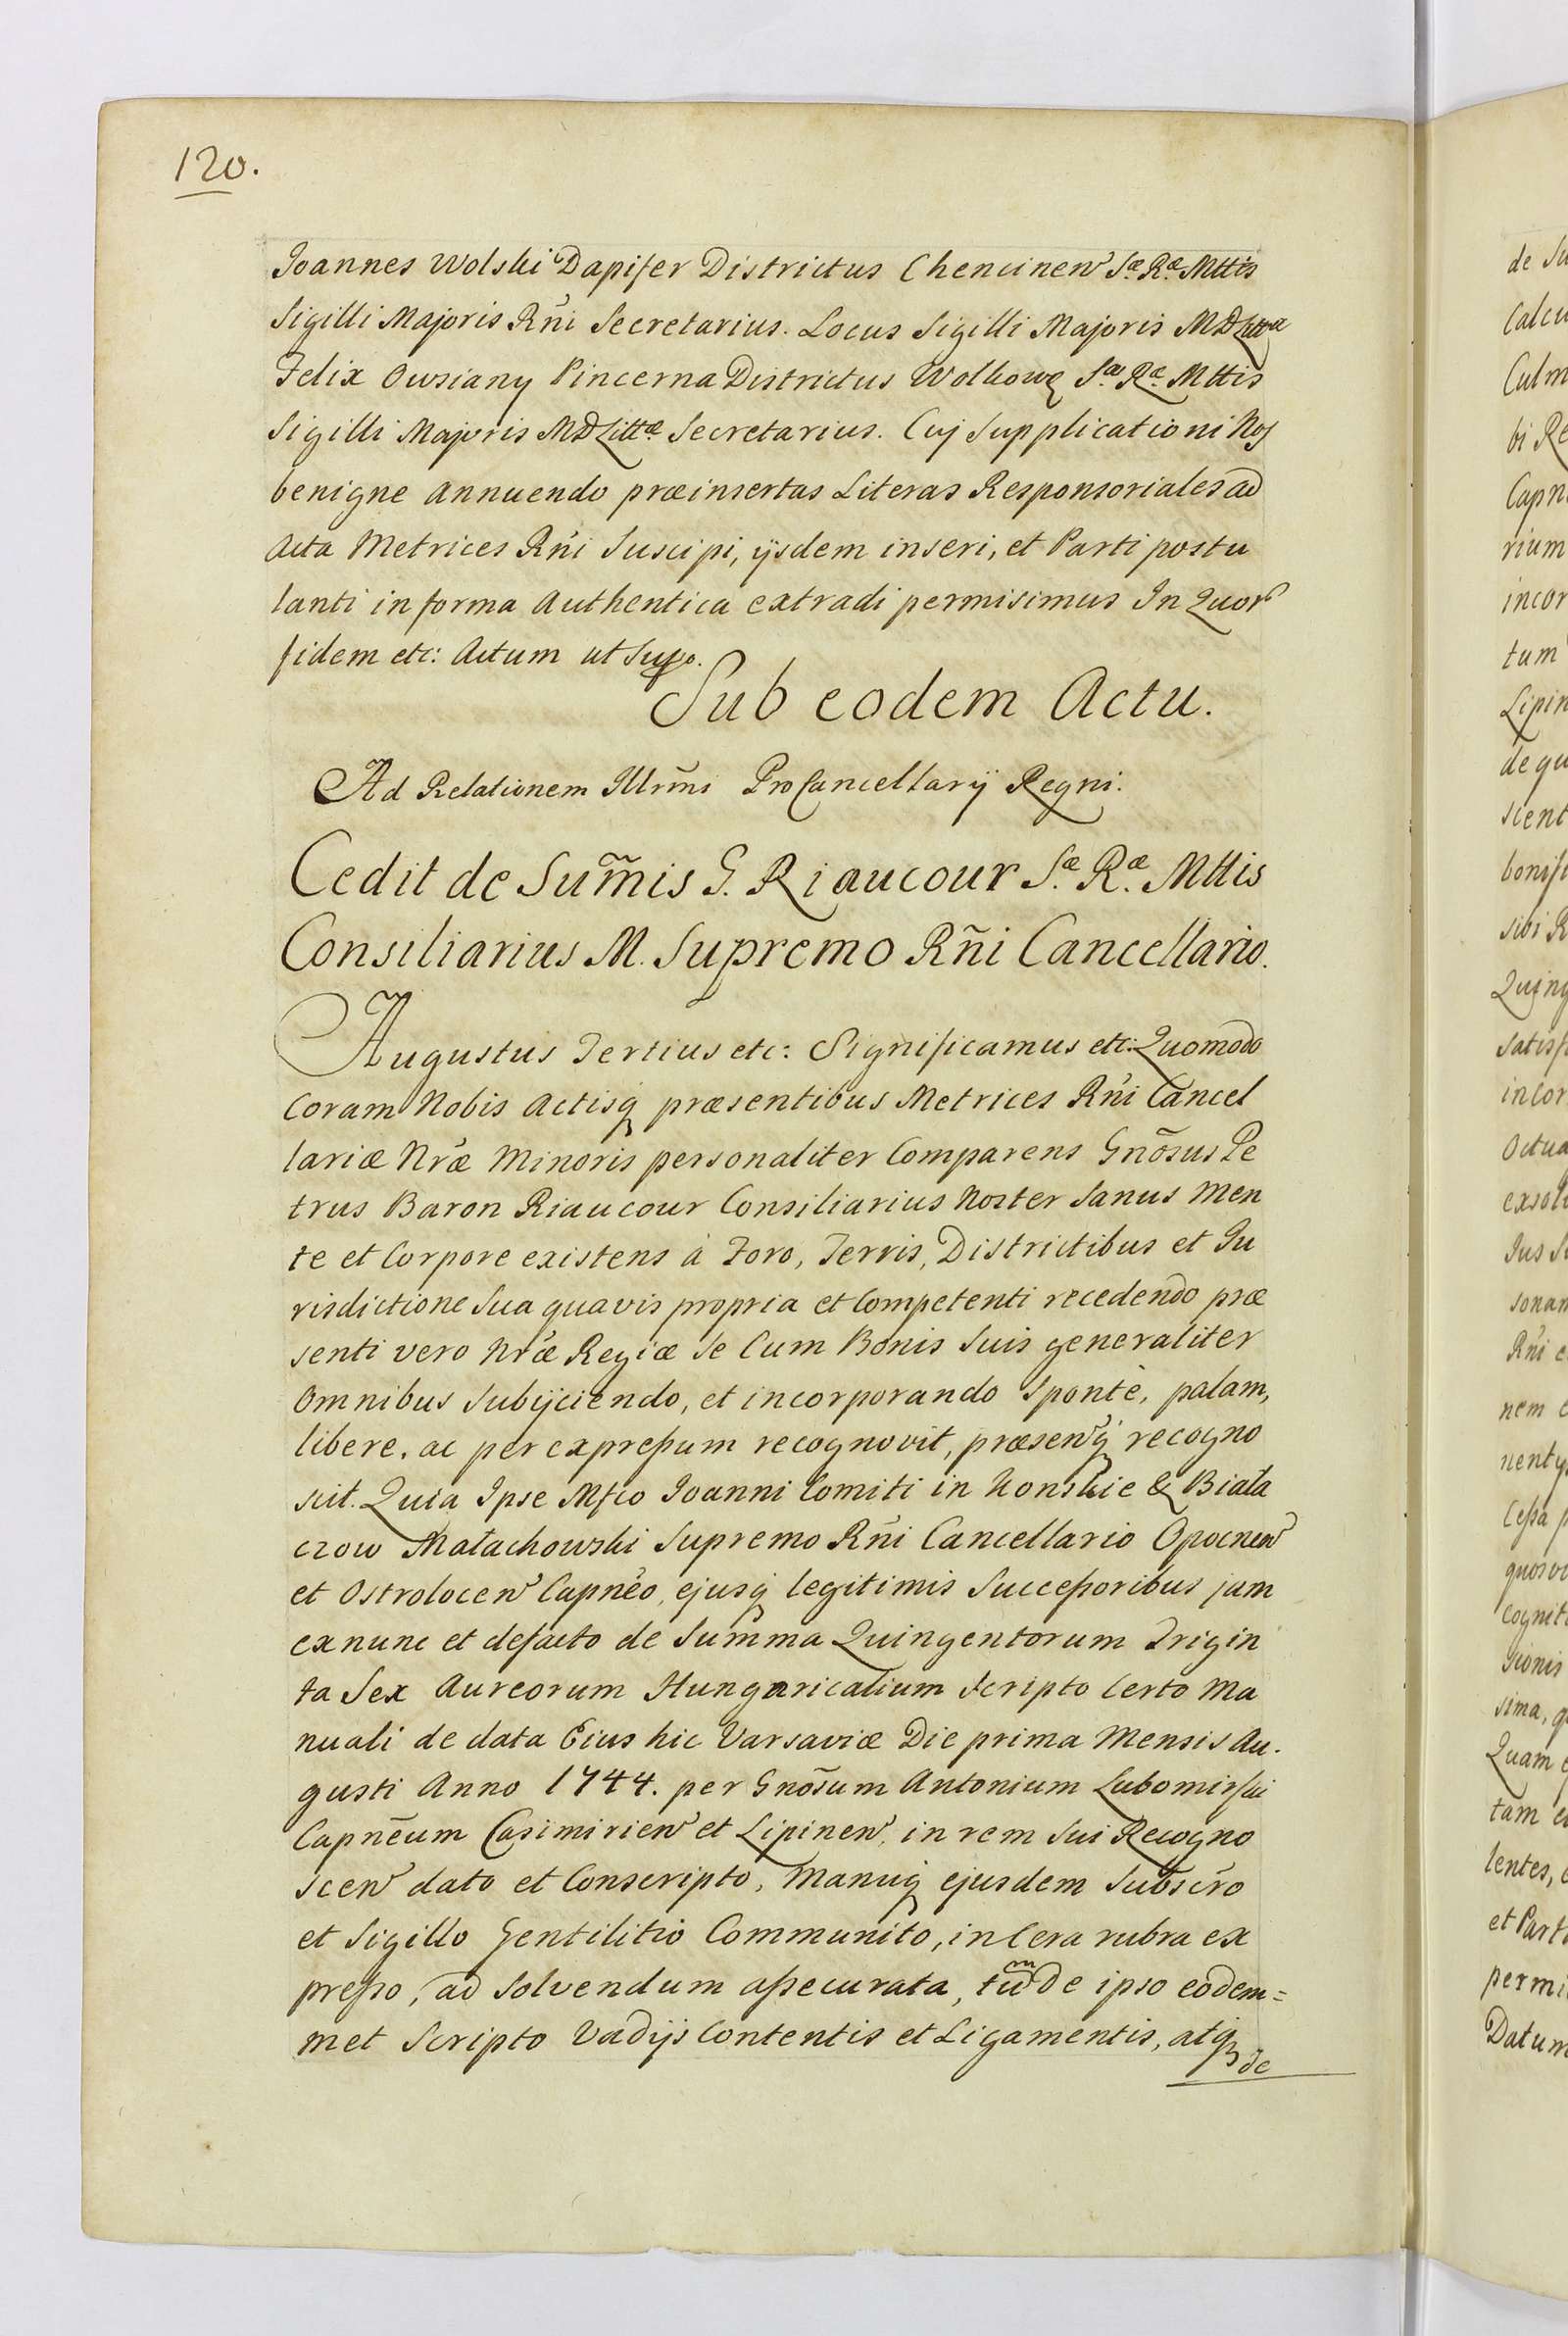 120.
Joannes Wolski Dapifer Districtus Chencinen̄ Sæ Ræ Mttis
Sigilli Majoris Rñi Secretarius. Locus Sigilli Majoris MDLittæ
Felix Owsiany Pincerna Districtus Wolkow Sæ Ræ Mttis
Sigilli Majoris MDLittæ Secretarius. Cuj Supplicationi Nos
benigne annuendo præinsertas Literas Responsoriales ad
Acta Metrices Rñi Suscipi, ijsdem inseri, et Parti postu
lanti in forma Authentica extradi permisimus In Quor
fidem etc: Actum ut Supo.
Sub eodem Actu.
Ad Relationem Illrm̃i ProCancellarij Regni:
Cedit de Sum̃is G. Riaucour Sæ Ræ Mttis
Consiliarius M. Supremo Rñi Cancellario.
Augustus Tertius etc: Significamus etc: Quomodo
Coram Nobis Actisq præsentibus Metrices Rñi Cancel
lariæ Nræ Minoris personaliter Comparens Gnõsus Pe
trus Baron Riaucour Consiliarius Noster Sanus Men
te et Corpore existens à Foro, Terris, Districtibus et Ju
risdictione Sua quavis propria et Competenti recedendo præ
senti vero Nræ Regiæ Se Cum Bonis Suis generaliter
Omnibus Subijciendo, et incorporando Sponte, palam,
libere, ac per expreßum recognovit, præsen̄q recogno
scit. Quia Ipse Mfco Joanni Comiti in Konskie & Biała
czow Małachowski Supremo Rñi Cancellario Opocnen̄
et Ostrolocen̄ Capnẽo, ejusq legitimis Succeßoribus jam
exnunc et defacto de Summa Quingentorum Trigin
ta Sex Aureorum Hungaricalium Scripto Certo Ma
nuali de data Eius hic Varsaviæ Die prima Mensis Au.
gusti Anno 1744. per Gnõsum Antonium Lubomirski
Capnẽum Casimirien̄ et Lipinen̄, in rem Sui Recogno
scen̄ dato et Conscripto, Manuq ejusdem Subscro
et Sigillo Gentilitio Communito, in Cera rubra ex
preßo, ad Solvendum aßecurata, tum de ipso eodem=
met Scripto Vadijs Contentis et Ligamentis, atq
de